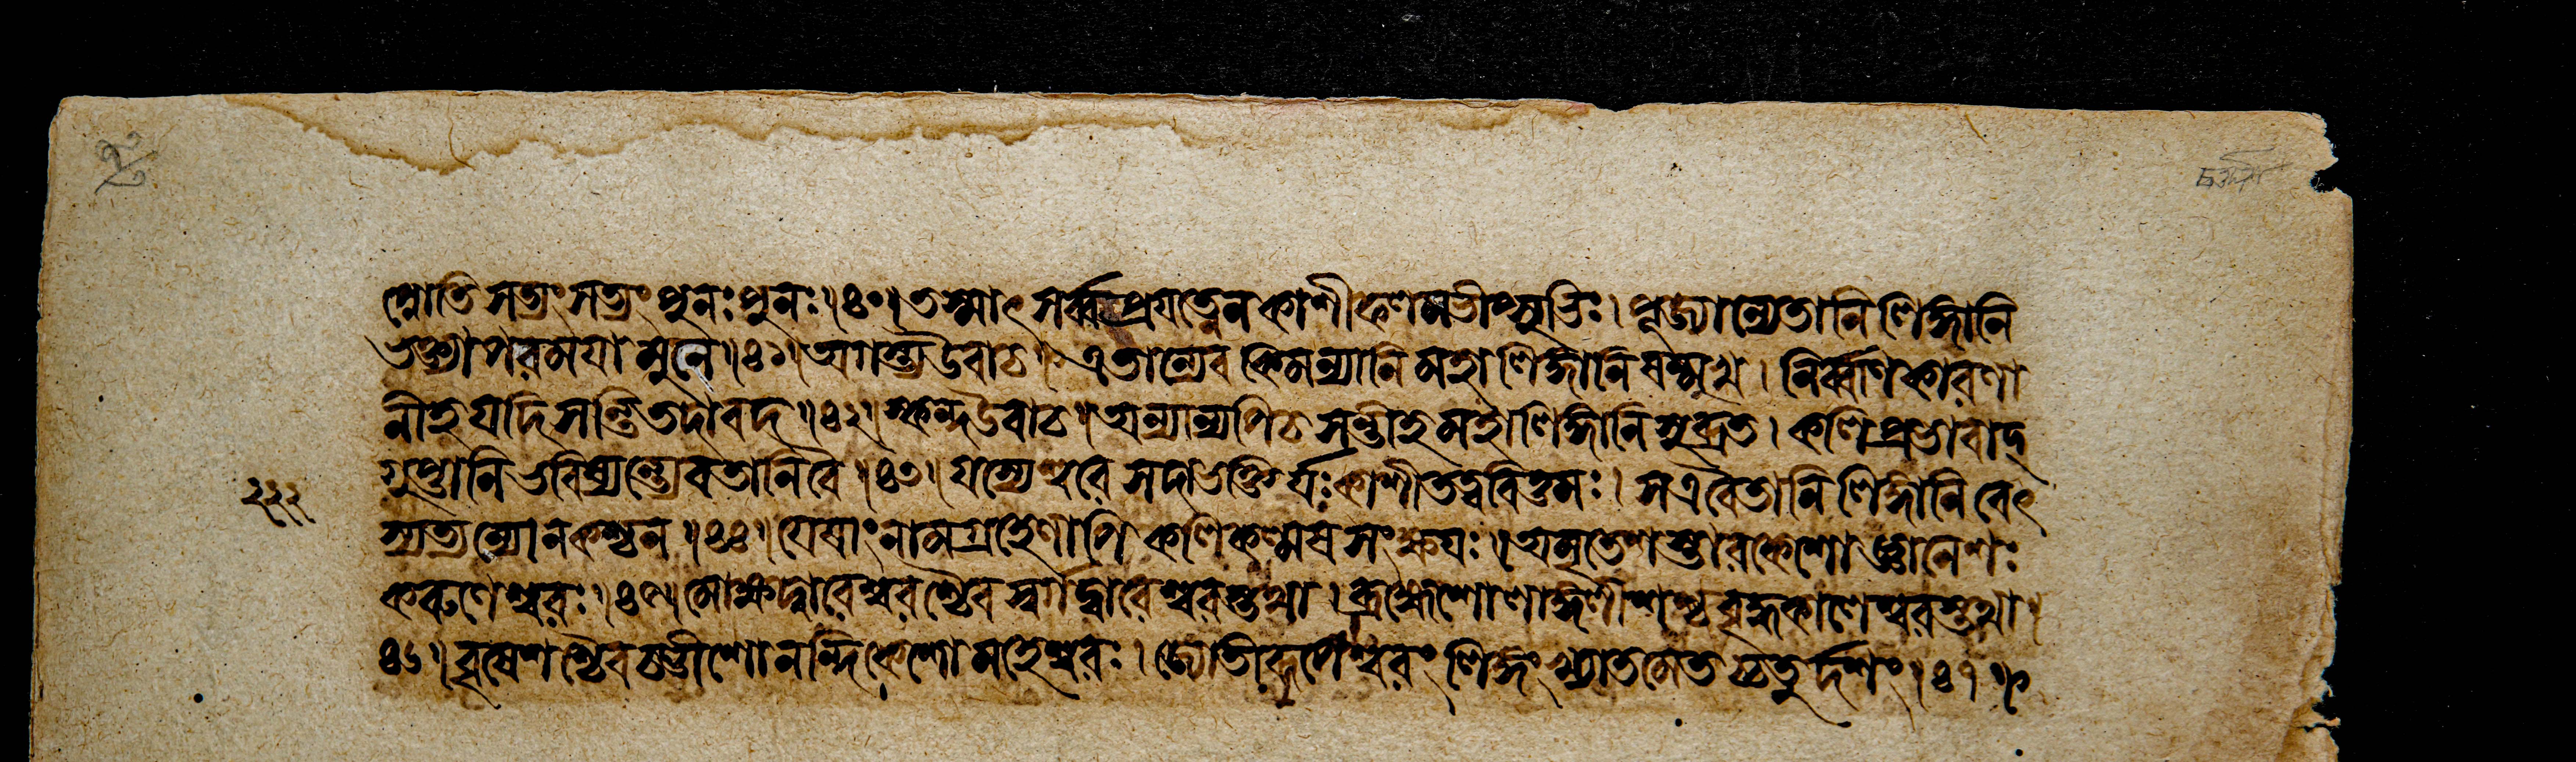 প্নোতি সত্যং সত্যং পুনঃ পুনঃ ॥ ৪০ ॥ তস্মাৎ সর্ব্বপ্রযত্নেন কাশীফলমভীপ্সুভিঃ । পূজ্যান্যেতানি লিঙ্গানি
ভক্ত্যা পৰমযা মুনে ॥ ৪১ ॥ অগস্ত্য উবাচ ॥ এতান্যেব কিমন্যানি মহালিঙ্গানি ষণ্মুখ । নির্ব্বাণকাৰণা
নীহ যদি সন্তি তদা বদ ॥ ৪২ ॥ স্কন্দ উবাচ ॥ অন্যান্যপি চ সন্তীহ মহালিঙ্গানি সুব্রত । কলিপ্রভাবাদ্
গুপ্তানি ভবিষ্যন্ত্যেব তানি বৈ ॥ ৪৩ ॥ যস্যেশ্বৰে সদা ভক্তির্যঃ কাশীতত্ত্ববিত্তমঃ । স এবৈতানি লিঙ্গানি বেৎ
স্যত্যন্যো ন কশ্চন ॥ ৪৪ ॥ যেষাং নামগ্রহেণাপি কলিকল্মষসংক্ষযঃ ॥ অমৃতেশস্তাৰকেশো জ্ঞানেশঃ
কৰুণেশ্বৰঃ ॥ ৪৫ ॥ মোক্ষদ্বাৰেশ্বৰশ্চৈব স্বর্গদ্বাৰেশ্বৰস্তথা । ব্রহ্মেশো লাঙ্গলীশশ্চ বৃদ্ধকালেশ্বৰস্তথা ॥
৪৬ ॥ বৃষেশশ্চৈব চণ্ডীশো নন্দিকেশো মহেশ্বৰঃ । জ্যোতীৰূপেশ্বৰং লিঙ্গং খ্যাতমেতচ্চতুর্দশং ॥ ৪৭ ॥
২২২